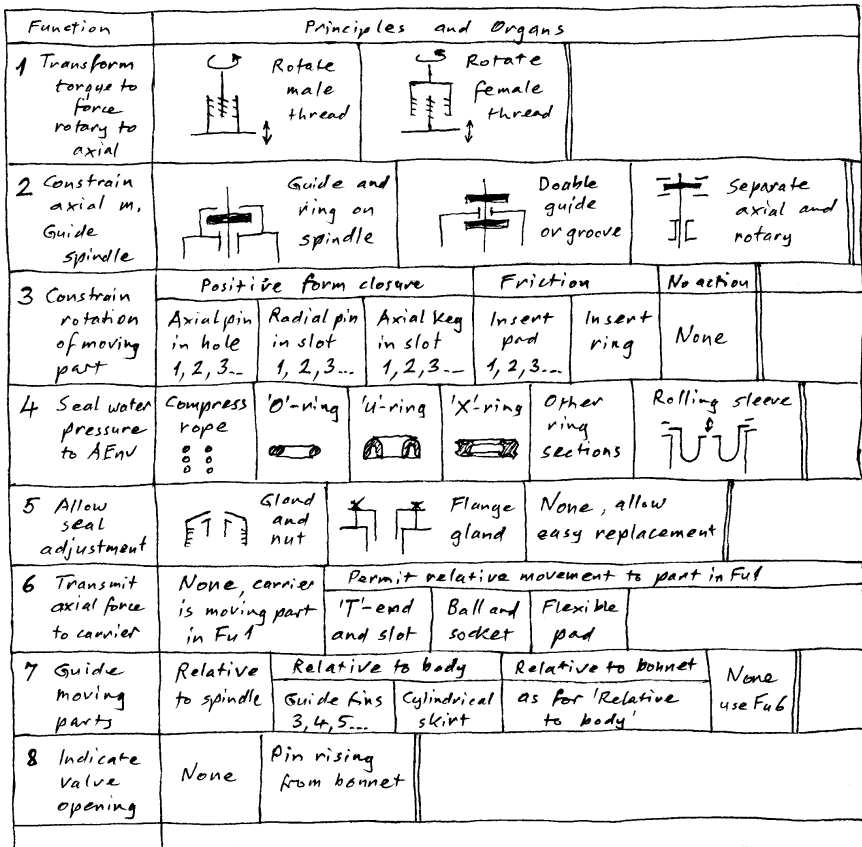 Function
Principles and Organs
1 Transform
torque to
force
rotary to
axial
Rotate
male
thread
Rotate
female
thread
2 Constrain
axial m.
Guide
spindle
Guide and
ring on
spindle
Double
guide
or groove
Separate
axial and
rotary
3 Constrain
rotation
of moving
part
Positive form closure
Friction
No action
Axial pin
in hole
1, 2, 3...
Radial pin
in slot
1, 2, 3...
Axial key
in slot
1, 2, 3...
Insert
pad
1, 2, 3...
Insert
ring
None
4 Seal water
pressure
to AEnv
Compress
rope
'O'-ring
'U'-ring
'X'-ring
Other
ring
sections
Rolling sleeve
5 Allow
seal
adjustment
Gland
and
nut
Flange
gland
None, allow
easy replacement
6 Transmit
axial force
to carrier
None, carrier
is moving part
in Fu 1
Permit relative movement to part in Fu1
'T'-end
and slot
Ball and
socket
Flexible
pad
7 Guide
moving
parts
Relative
to spindle
Relative to body
Guide fins
3, 4, 5...
Cylindrical
skirt
Relative to bonnet
as for 'Relative
to body'
None
use Fu6
8 Indicate
valve
opening
None
Pin rising
from bonnet